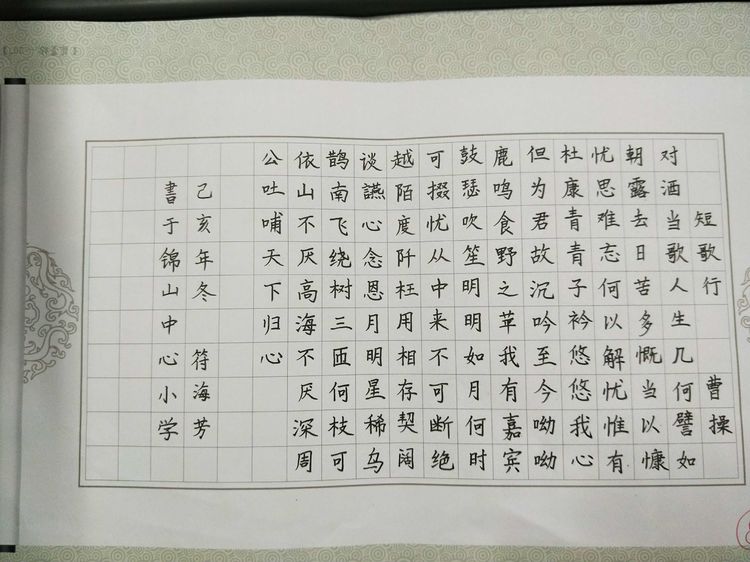 短歌行 曹操
对酒当歌人生几何譬如
朝露去日苦多慨当以慷
忧思难忘何以解忧惟有
杜康青青子衿悠悠我心
但为君故沉吟至今呦呦
鹿鸣食野之苹我有嘉宾
鼓瑟吹笙明明如月何时
可掇忧从中来不可断绝
越陌度阡枉用相存契阔
谈讌心念恩月明星稀乌
鹊南飞绕树三匝何枝可
依山不厌高海不厌深周
公吐哺天下归心
己亥年冬 符海芳
書于锦山中心小学